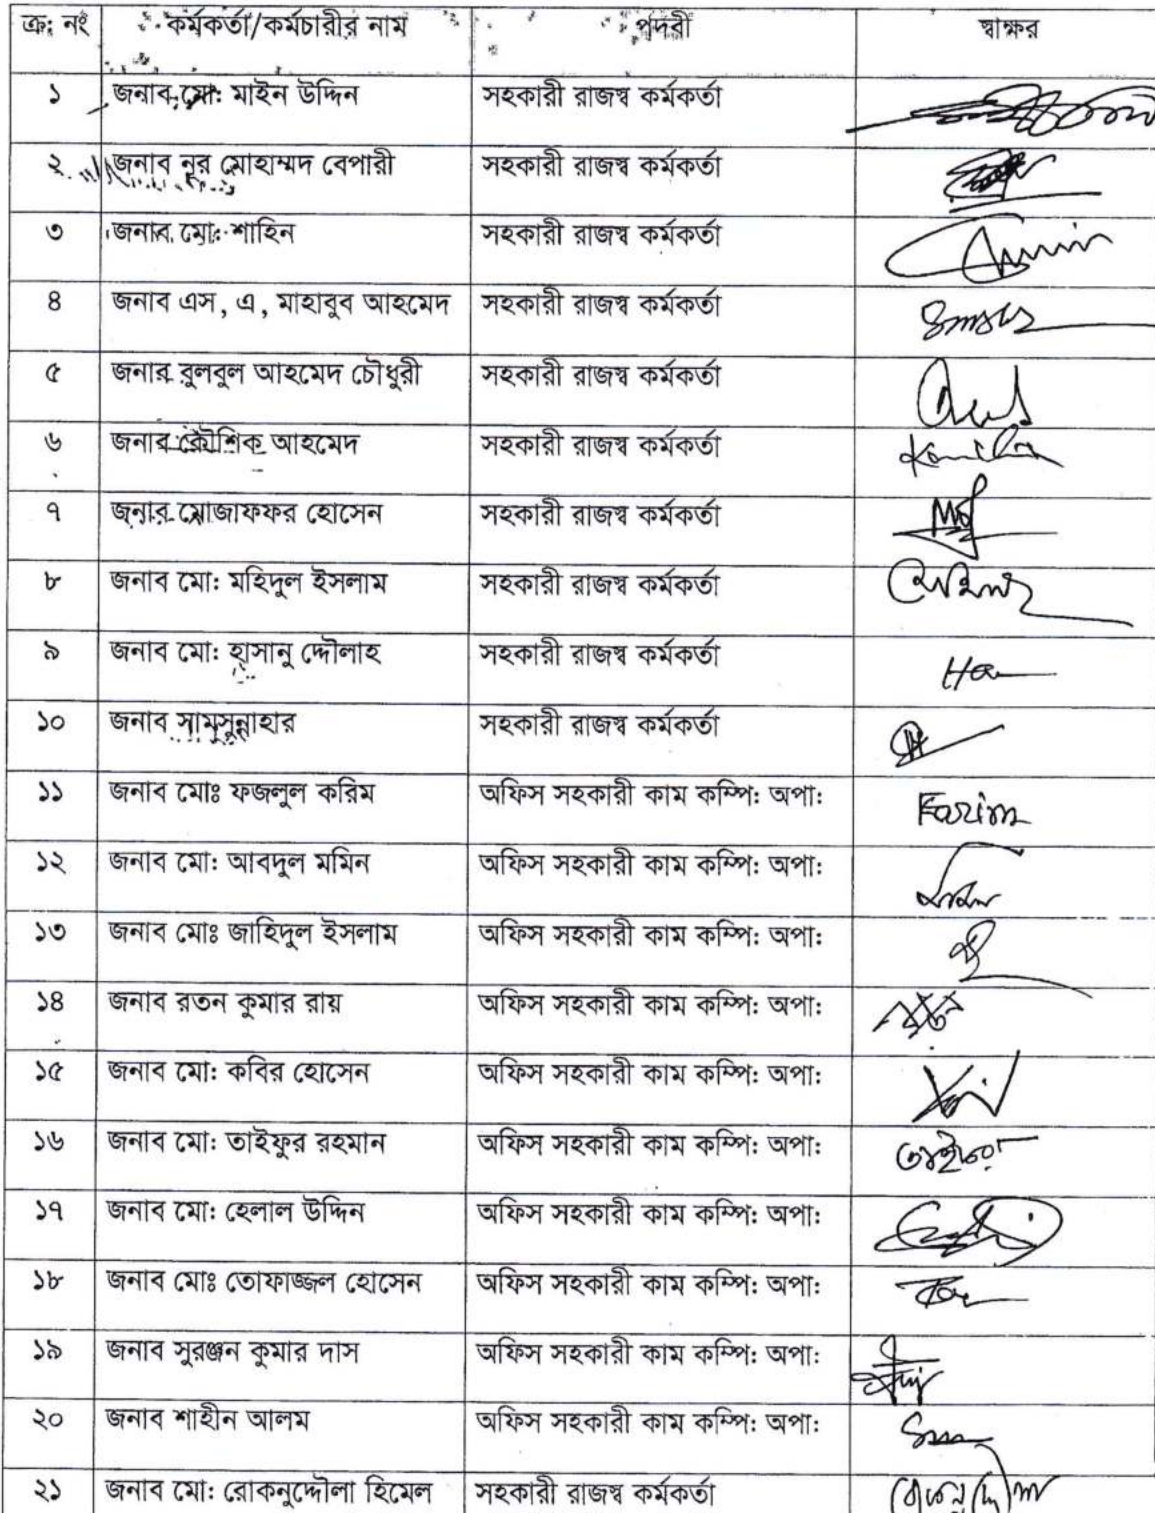 ক্র: নং কর্মকর্তা/কর্মচারীর নাম পদবী স্বাক্ষর
১ জনাব মো: মাইন উদ্দিন সহকারী রাজস্ব কর্মকর্তা
২ জনাব নুর মোহাম্মদ বেপারী সহকারী রাজস্ব কর্মকর্তা
৩ জনাব মো: শাহিন সহকারী রাজস্ব কর্মকর্তা
৪ জনাব এস, এ, মাহাবুব আহমেদ সহকারী রাজস্ব কর্মকর্তা
৫ জনাব বুলবুল আহমেদ চৌধুরী সহকারী রাজস্ব কর্মকর্তা
৬ জনাব কৌশিক আহমেদ সহকারী রাজস্ব কর্মকর্তা
৭ জনাব মোজাফফর হোসেন সহকারী রাজস্ব কর্মকর্তা
৮ জনাব মো: মহিদুল ইসলাম সহকারী রাজস্ব কর্মকর্তা
৯ জনাব মো: হাসানু দ্দৌলাহ সহকারী রাজস্ব কর্মকর্তা
১০ জনাব সামসুন্নাহার সহকারী রাজস্ব কর্মকর্তা
১১ জনাব মোঃ ফজলুল করিম অফিস সহকারী কাম কম্পি: অপা: Karim
১২ জনাব মো: আবদুল মমিন অফিস সহকারী কাম কম্পি: অপা:
১৩ জনাব মোঃ জাহিদুল ইসলাম অফিস সহকারী কাম কম্পি: অপা:
১৪ জনাব রতন কুমার রায় অফিস সহকারী কাম কম্পি: অপা:
১৫ জনাব মো: কবির হোসেন অফিস সহকারী কাম কম্পি: অপা:
১৬ জনাব মো: তাইফুর রহমান অফিস সহকারী কাম কম্পি: অপা:
১৭ জনাব মো: হেলাল উদ্দিন অফিস সহকারী কাম কম্পি: অপা:
১৮ জনাব মোঃ তোফাজ্জল হোসেন অফিস সহকারী কাম কম্পি: অপা:
১৯ জনাব সুরঞ্জন কুমার দাস অফিস সহকারী কাম কম্পি: অপা:
২০ জনাব শাহীন আলম অফিস সহকারী কাম কম্পি: অপা:
২১ জনাব মো: রোকনুদ্দৌলা হিমেল সহকারী রাজস্ব কর্মকর্তা